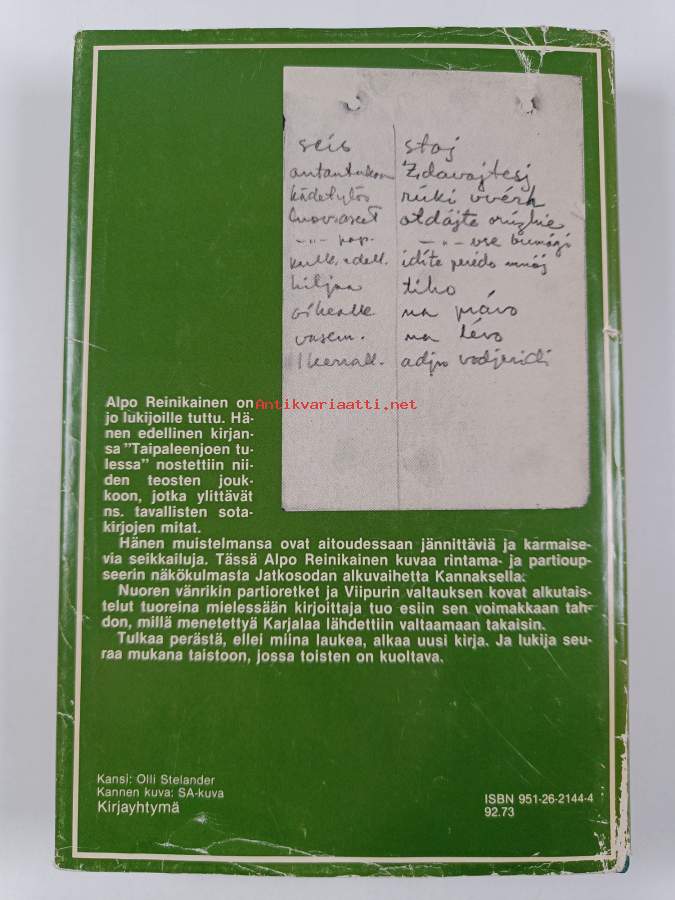 seis staj
antautukaa Zdavajtesj
kädetylös rúki vvérh
luovu aseet otdájte orúzhie
—"— pap. —"— vse bumági
kulk. edell. idíte perido mnój
hiljaa tiho
oikealle na právo
vasem. na lévo
1 kerrall. adjno
Alpo Reinikainen on
jo lukijoille tuttu. Hä-
nen edellinen kirjan-
sa "Taipaleenjoen tu-
lessa" nostettiin nii-
den teosten jouk-
koon, jotka ylittävät
ns. tavallisten sota-
kirjojen mitat.
Hänen muistelmansa ovat aitoudessaan jännittäviä ja karmaise-
via seikkailuja. Tässä Alpo Reinikainen kuvaa rintama- ja partioup-
seerin näkökulmasta Jatkosodan alkuvaihetta Kannaksella.
Nuoren vänrikin partioretket ja Viipurin valtauksen kovat alkutais-
telut tuoreina mielessään kirjoittaja tuo esiin sen voimakkaan tah-
don, millä menetettyä Karjalaa lähdettiin valtaamaan takaisin.
Tulkaa perästä, ellei miina laukea, alkaa uusi kirja. Ja lukija seu-
raa mukana taistoon, jossa toisten on kuoltava.
Antikvariaatti.net
Kansi: Olli Stelander
Kannen kuva: SA-kuva
Kirjayhtymä
ISBN 951-26-2144-4
92.73